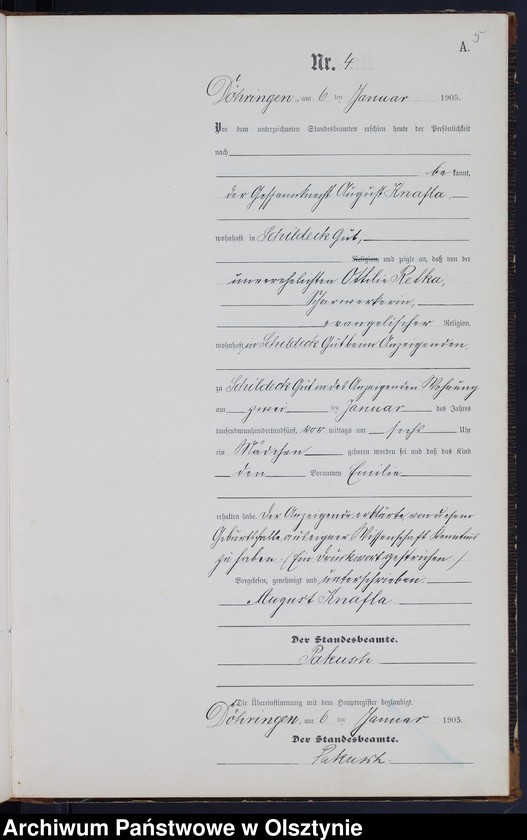 5
A.
Nr. 4.
Döhringen, am 6 ten Januar 1905.
Vor dem unterzeichneten Standesbeamten erschien heute der Persönlichkeit
nach
be kannt,
der Gespannknecht August Knafla,
wohnhaft in Schildeck Gut,
Religion, und zeigte an, daß von der
unverehelichten Ottilie Retka,
Scharwerkerin,
evangelischer Religion,
wohnhaft in Schildeck Gut beim Anzeigenden
zu Schildeck Gut in des Anzeigenden Wohnung
am zwei ten Januar des Jahres
tausendneunhundertundfünf, vor mittags um sechs Uhr
ein Mädchen geboren worden sei und daß das Kind
den Vornamen Emilie
erhalten habe. Der Anzeigende erklärte, von diesem
Geburtsfalle aus eigner Wissenschaft Kenntnis
zu haben. (Ein Druckwort gestrichen)
Vorgelesen, genehmigt und unterschrieben.
August Knafla
Der Standesbeamte.
Pakusch
Die Übereinstimmung mit dem Hauptregister beglaubigt.
Döhringen, am 6 ten Januar 1905.
Der Standesbeamte.
Pakusch.
Archiwum Państwowe w Olsztynie